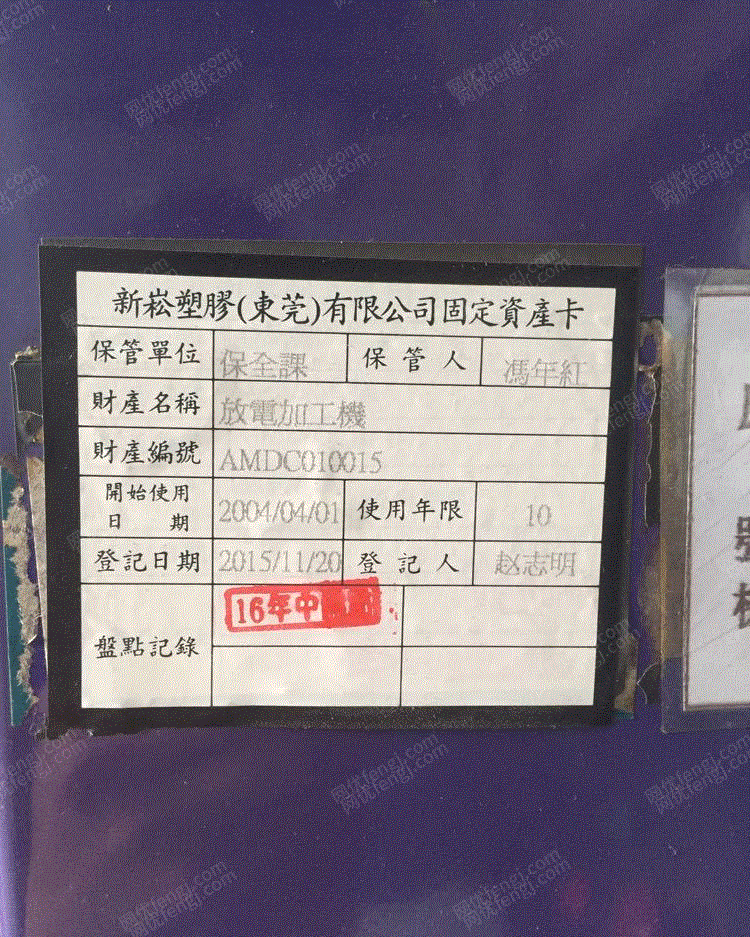 新崧塑膠(東莞)有限公司固定資產卡
保管單位 保全課 保管人 馮年紅
財產名稱 放電加工機
財產編號 AMDC010015
開始使用日期 2004/04/01 使用年限 10
登記日期 2015/11/20 登記人 赵志明
盤點記錄 16年中
號